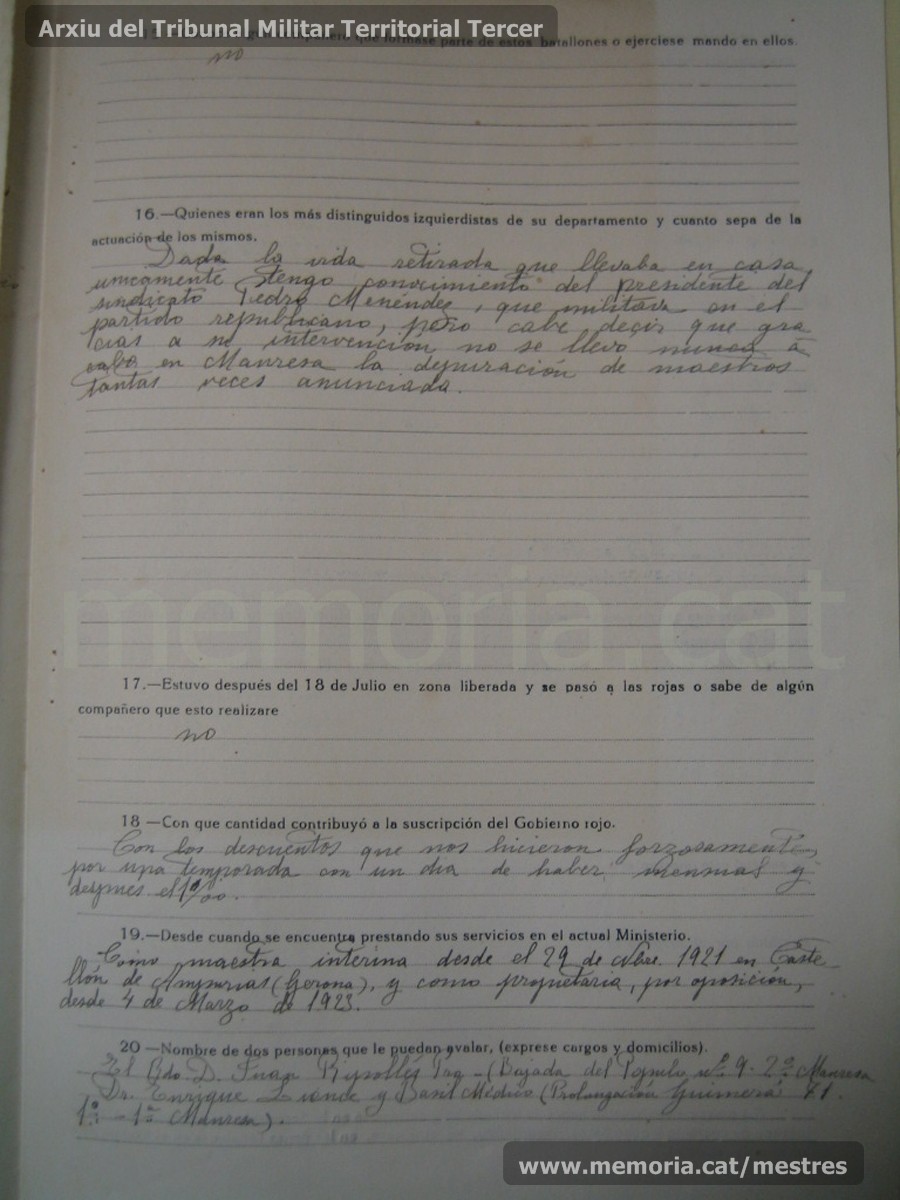 Arxiu del Tribunal Militar Territorial Tercer
que formase parte de estos batallones o ejerciese mando en ellos.
no
16.—Quienes eran los más distinguidos izquierdistas de su departamento y cuanto sepa de la
actuación de los mismos.
Dada la vida retirada que llevaba en casa,
unicamente tengo conocimiento del presidente del
sindicato Pedro Menéndez, que militava en el
partido republicano, pero cabe decir que gra
cias a su intervención no se llevó nunca á
cabo en Manresa la depuración de maestros
tantas veces anunciada.
memoria.cat
17.—Estuvo después del 18 de Julio en zona liberada y se pasó a las rojas o sabe de algún
compañero que esto realizare
no
18 —Con que cantidad contribuyó a la suscripción del Gobierno rojo.
Con los descuentos que nos hicieron forzosamente,
por una temporada con un dia de haber mensual y
despues el 1%.
19.—Desde cuando se encuentra prestando sus servicios en el actual Ministerio.
Como maestra interina desde el 29 de Nbre. 1921 en Caste
llón de Ampurias (Gerona), y como propietaria, por oposición,
desde 4 de Marzo de 1923.
20 —Nombre de dos personas que le puedan avalar, (exprese cargos y domicilios).
El Rdo. D. Juan (Bajada del Pópulo nº 9 - 2º Manresa
Dr. Enrique y Basil Médico (Prolongación Guimerá 71.
1º - 1ª Manresa).
www.memoria.cat/mestres